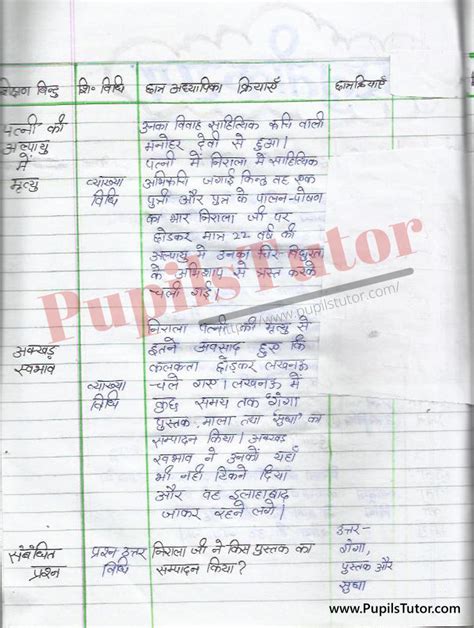 शिक्षण बिन्दु शि॰ विधि छात्र अध्यापिका क्रियाएँ छात्रक्रियाएँ
पत्नी की
अल्पायु
में
मृत्यु
व्याख्या
विधि
उनका विवाह साहित्यिक रूचि वाली
मनोहर देवी से हुआ।
पत्नी में निराला में साहित्यिक
अभिरूचि जगाई किन्तु वह एक
पुत्री और पुत्र के पालन-पोषण
का भार निराला जी पर
छोडकर मात्र 22 वर्ष की
अल्पायु में उनका चिर विधुरता
के अभिशाप से त्रस्त करके
चली गई।
PupilsTutor
http://www.pupilstutor.com/
अक्खड़
स्वभाव
व्याख्या
विधि
निराला पत्नी की मृत्यु से
इतने अवसाद हुए कि
कलकता छोड़कर लखनऊ
चले गए। लखनऊ में
कुछ समय तक 'गंगा
पुस्तक माला तथा 'सुधा' का
सम्पादन किया। अक्खड़
स्वभाव ने उनको यहाँ
भी नही टिकने दिया
और वह इलाहाबाद
जाकर रहने लगे।
संबंधित
प्रश्न
प्रश्न उत्तर
विधि
निराला जी ने किस पुस्तक का
सम्पादन किया?
उत्तर-
गंगा,
पुस्तक और
सुधा
www.PupilsTutor.com